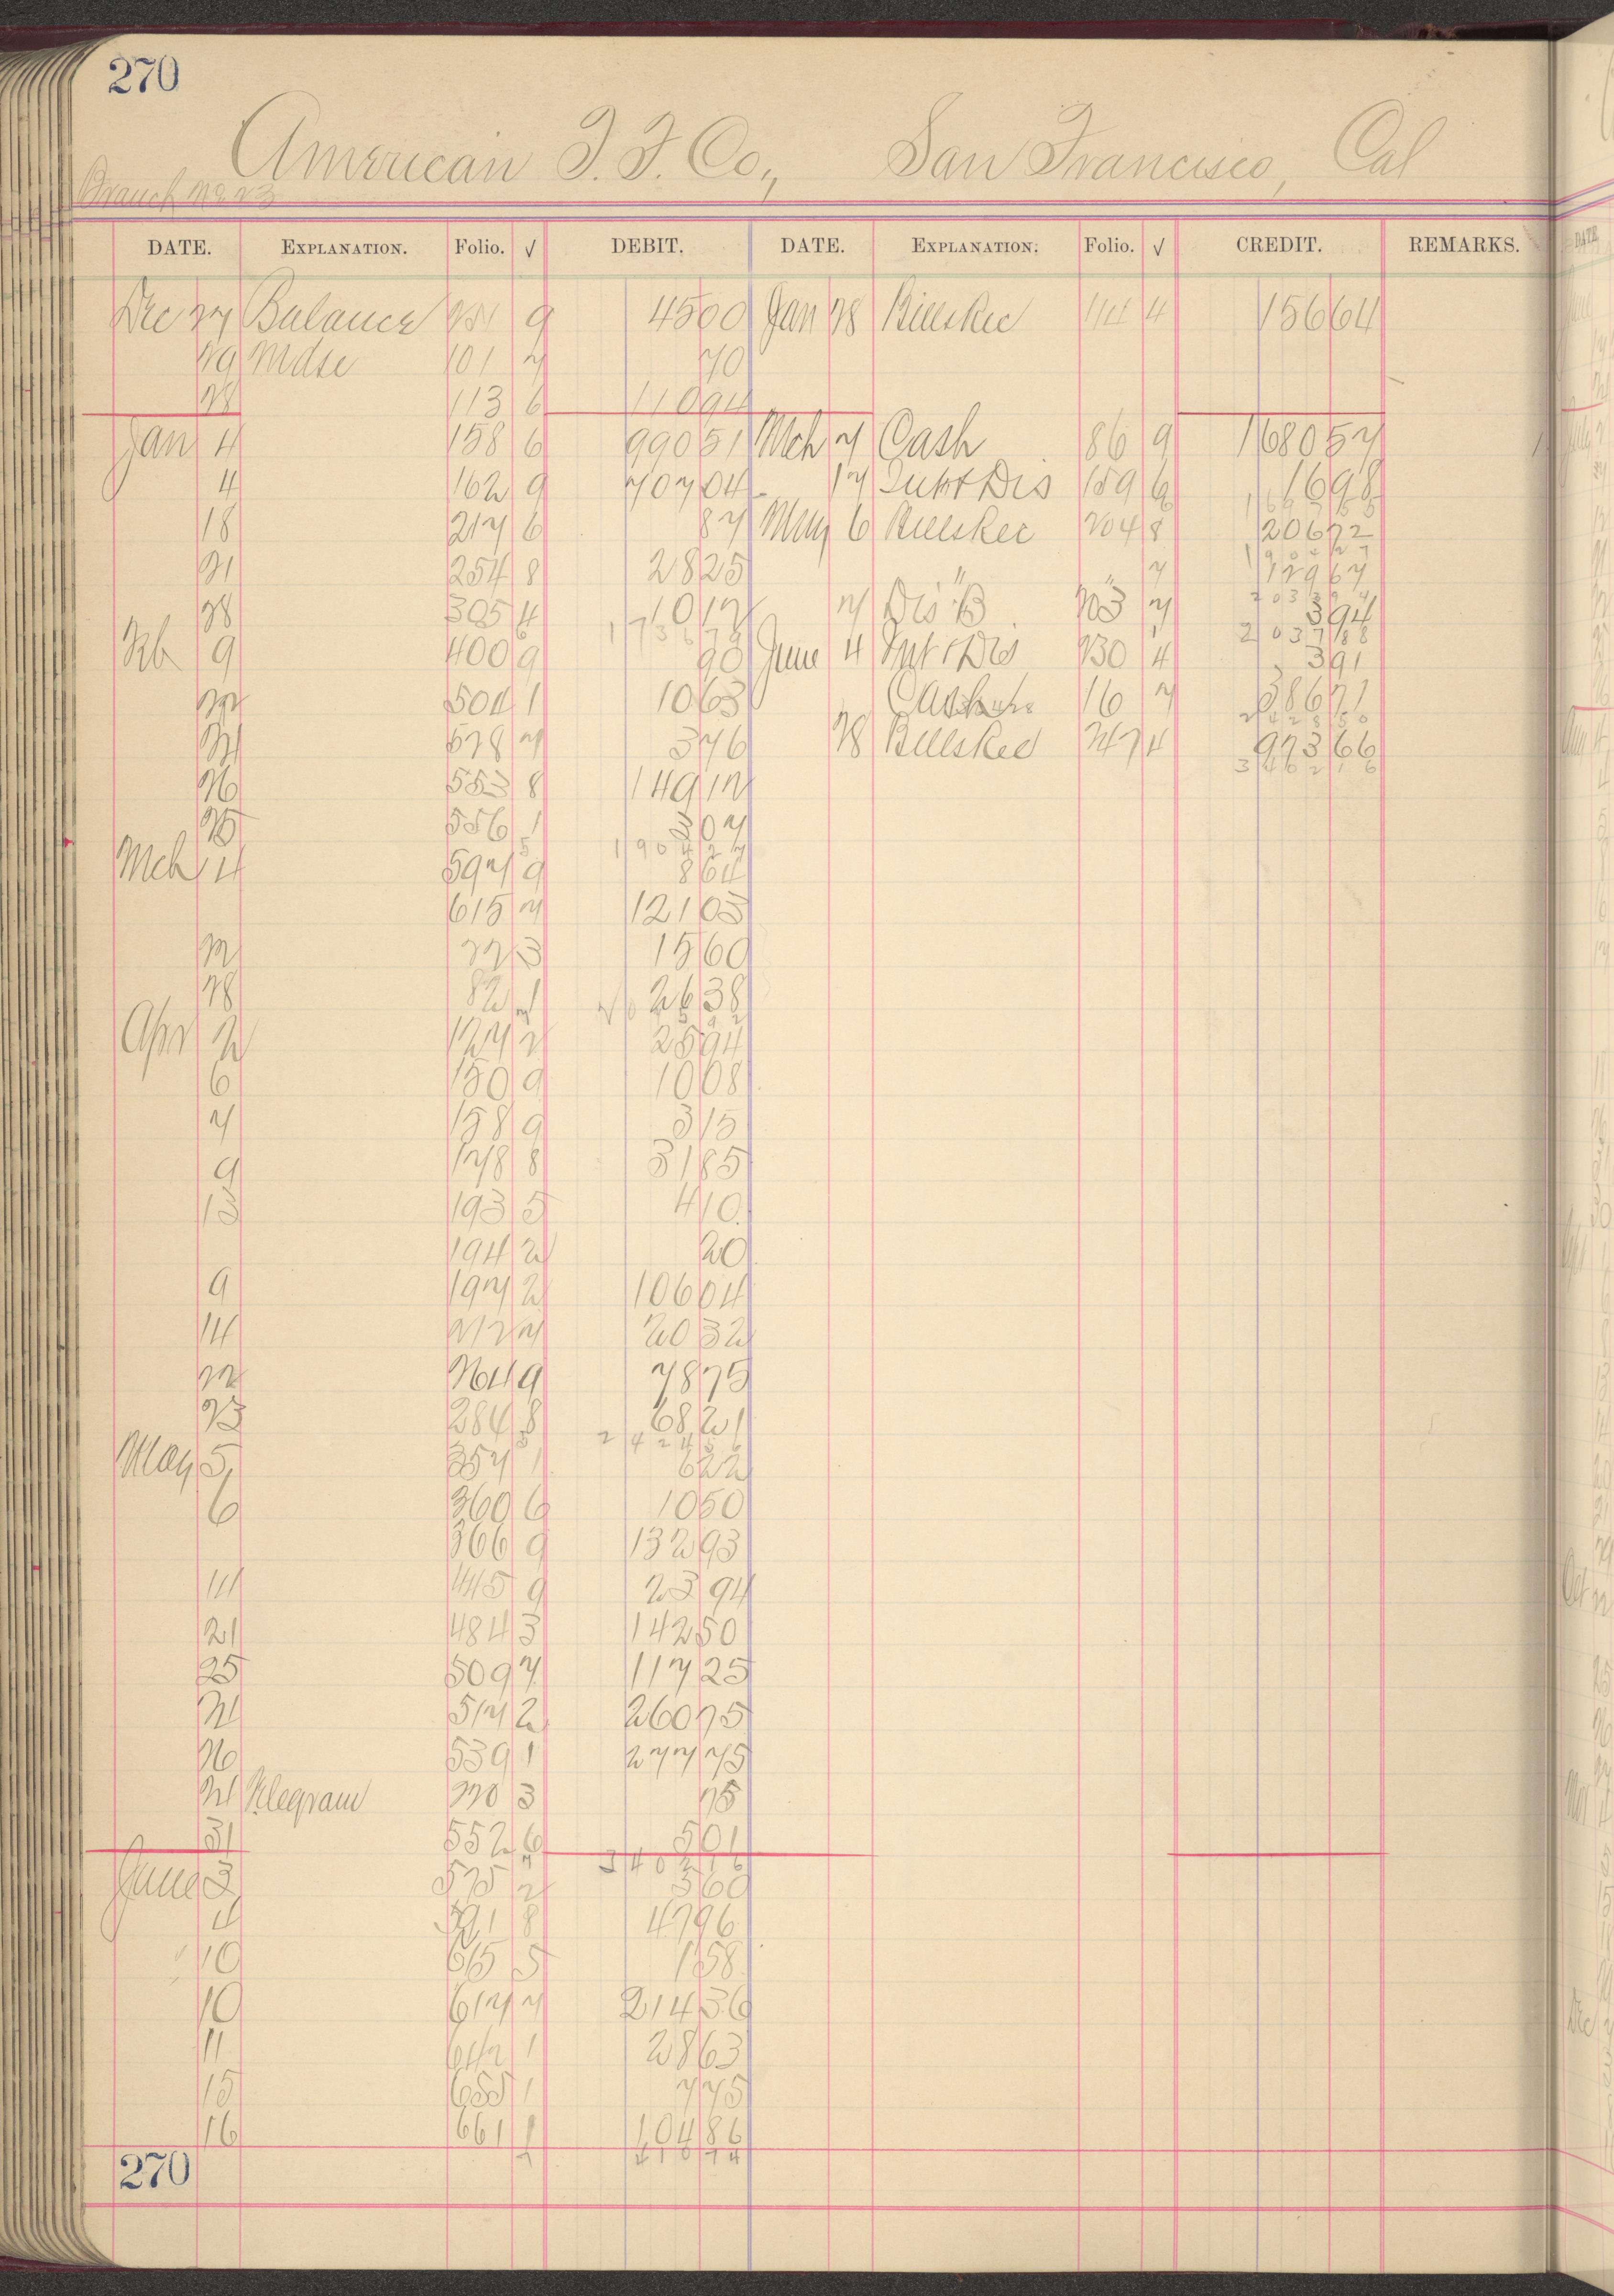 270
American T. F. Co., San Francisco, Cal
Branch No 23
DATE. EXPLANATION. Folio. √ DEBIT. DATE. EXPLANATION. Folio. √ CREDIT. REMARKS.
Dec 27 Balance 251 9 4500 Jan 28 Bills Rec 114 4 15664
29 Mdse 101 7 70
28 113 6 11094
Jan 4 158 6 99051 Mch 7 Cash 86 9 168057
4 162 9 70704 17 Int & Dis 159 6 1698
18 217 6 87 May 6 Bills Rec 204 8 20672
21 254 8 2825 " " 7 12967
28 305 4 1012 7 Dis B 203 7 394
173679 203788
Feb 9 400 9 90 June 4 Int & Dis 230 4 391
504 1 1063 Cash 16 7 38671
578 7 376 28 Bills Rec 247 4 97366
340216
26 553 8 14912
25 556 1 207
190427
Mch 4 597 9 864
615 7 12103
12 22 3 1560
28 82 1 2638
Apr 2 127 2 2594
6 150 9 1008
7 158 9 315
9 178 8 3185
13 193 5 410
194 2 20
9 197 2 10604
14 212 7 2032
22 264 9 7875
23 284 8 6821
May 5 357 1 622
6 360 6 1050
366 9 13293
14 445 9 2394
21 484 3 14250
25 509 7 11725
21 517 2 26075
26 539 1 27775
21 Telegram 220 3 75
31 552 6 501
340216
June 3 575 2 360
4 591 8 4796
10 615 5 158
10 617 7 21436
11 642 1 2863
15 655 1 775
16 661 1 10486
270